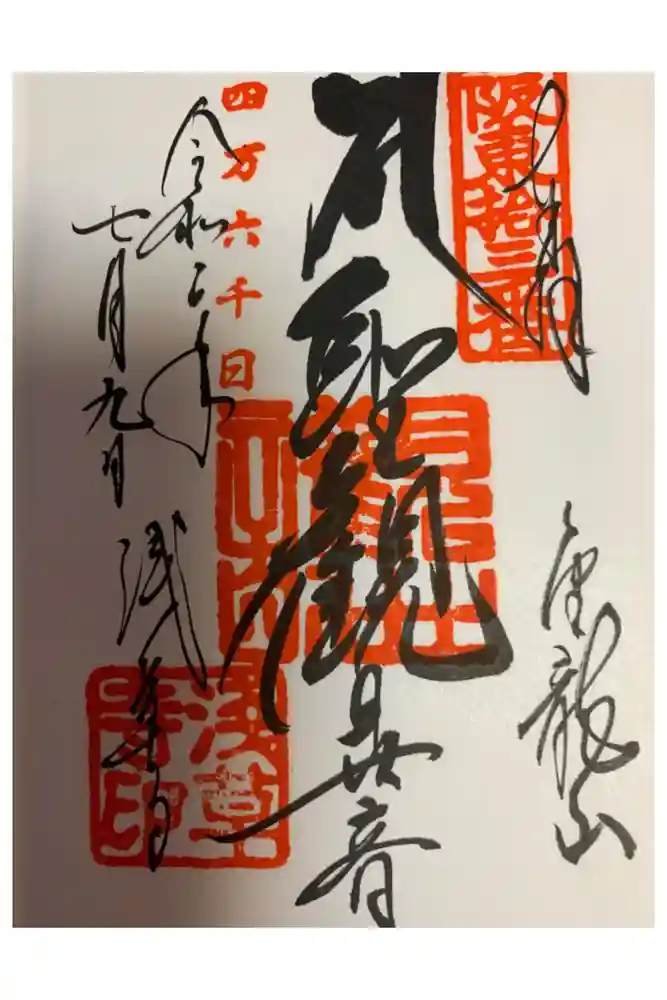 奉拝
阪東拾三番
金龍山
聖観世音
四万六千日
令和二年
七月九日
浅草寺
浅草
寺印